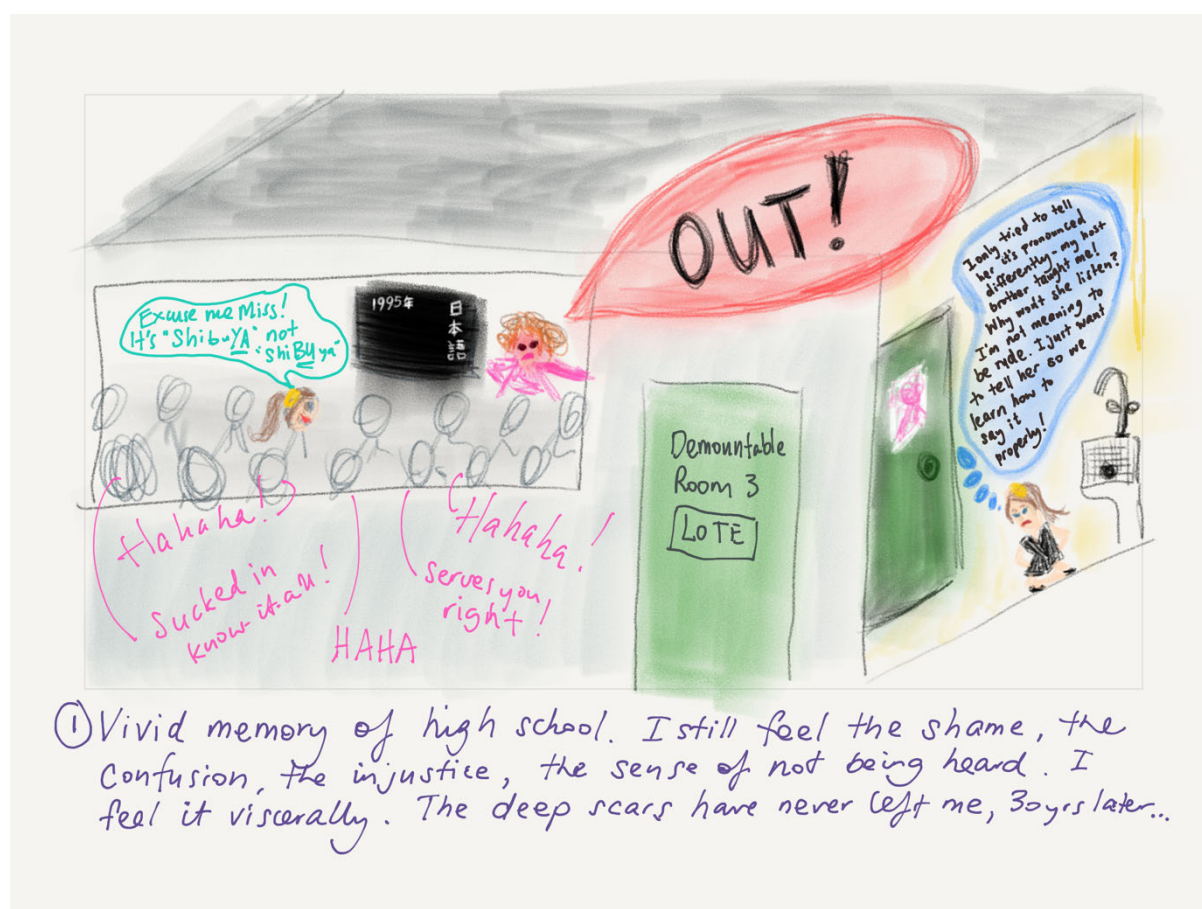 Excuse me Miss!
It's "ShibuYA" not
"shiBUya"
1995年
日本語
OUT!
I only tried to tell
her it's pronounced
differently - my host
brother taught me!
Why won't she listen?
I'm not meaning to
be rude. I just want
to tell her so we
learn how to
say it
properly!
Demountable
Room 3
LOTE
Hahaha!
Sucked in
know-it-all!
HAHA
Hahaha!
serves you
right!
① Vivid memory of high school. I still feel the shame, the
confusion, the injustice, the sense of not being heard. I
feel it viscerally. The deep scars have never left me, 30yrs later...